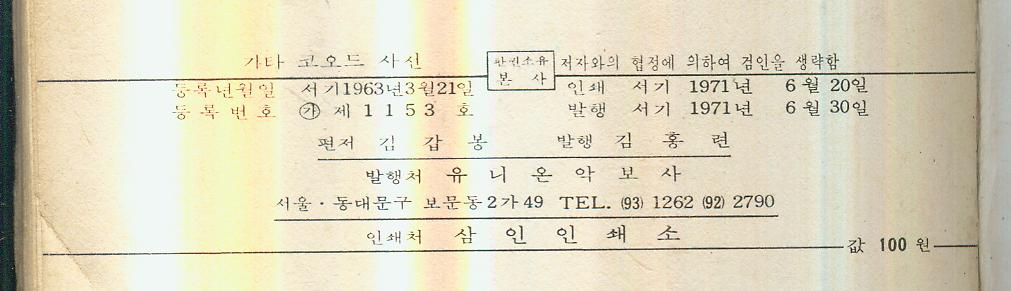 가타 코오드 사선 판권소유 본사 저자와의 협정에 의하여 검인을 생략함
등록년월일 서기1963년3월21일 인쇄 서기 1971년 6월 20일
등록번호 ㉮ 제1153호 발행 서기 1971년 6월 30일
편저 김갑봉 발행 김홍련
발행처 유니온악보사
서울·동대문구 보문동2가49 TEL. (93) 1262 (92) 2790
인쇄처 삼인인쇄소
값 100원